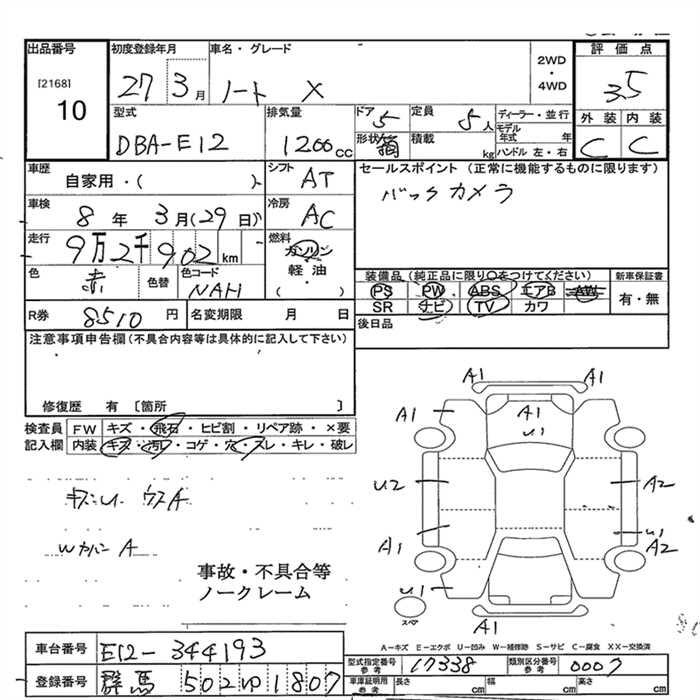 出品番号
[2168]
10
初度登録年月
27 3月
車名・グレード
ノート X
2WD
・
4WD
評価点
3.5
外装 内装
C C
型式
DBA-E12
排気量
1200cc
ドア 5
定員 5人
形状 箱
積載 kg
ディーラー・並行
モデル年式 年
ハンドル 左・右
車歴
自家用・( )
シフト AT
車検
8年 3月(29日)
冷房 AC
走行
9万2千902km
燃料
ガソリン
軽油
( ・ )
色 赤
色替
色コード NAH
R券 8510円
名変期限 月 日
セールスポイント (正常に機能するものに限ります)
バックカメラ
装備品 (純正品に限り○をつけてください)
PS PW ABS エアB AW
SR ナビ TV カワ
新車保証書
有・無
後日品
注意事項申告欄(不具合内容等は具体的に記入して下さい)
修復歴 有 〔箇所 〕
検査員記入欄
FW キズ・飛石・ヒビ割・リペア跡・×要
内装 キズ・汚レ・コゲ・穴・スレ・キレ・破レ
キズ・U ウスA
Wカバン A
事故・不具合等
ノークレーム
A1 A1
A1 A1
U1
U2 A2
U1
A1 A2
U1
スペア
A1
A－キズ E－エクボ U－凹み W－補修跡 S－サビ C－腐食 XX－交換済
車台番号 E12-344193
登録番号 群馬 502 ゆ 1807
型式指定番号 参考 17338
類別区分番号 参考 0007
車庫証明用 参考 長さ cm 幅 cm 高さ cm